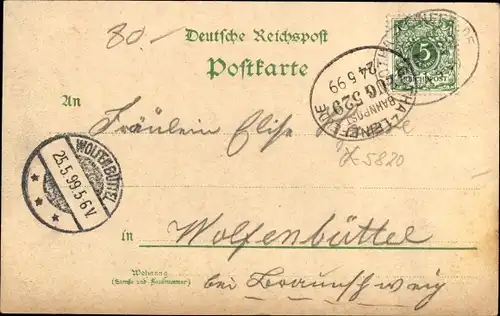 80.-
Deutsche Reichspost
Postkarte
5
REICHSPOST
LEINEFELDE
BAHNPOST
ZUG 529
24 5 99
An
Fräulein Elise
X-5820
WOLFENBÜTTEL
25.5.99.5-6V.
in Wolfenbüttel
bei Braunschweig
Wohnung
(Straße und Hausnummer)